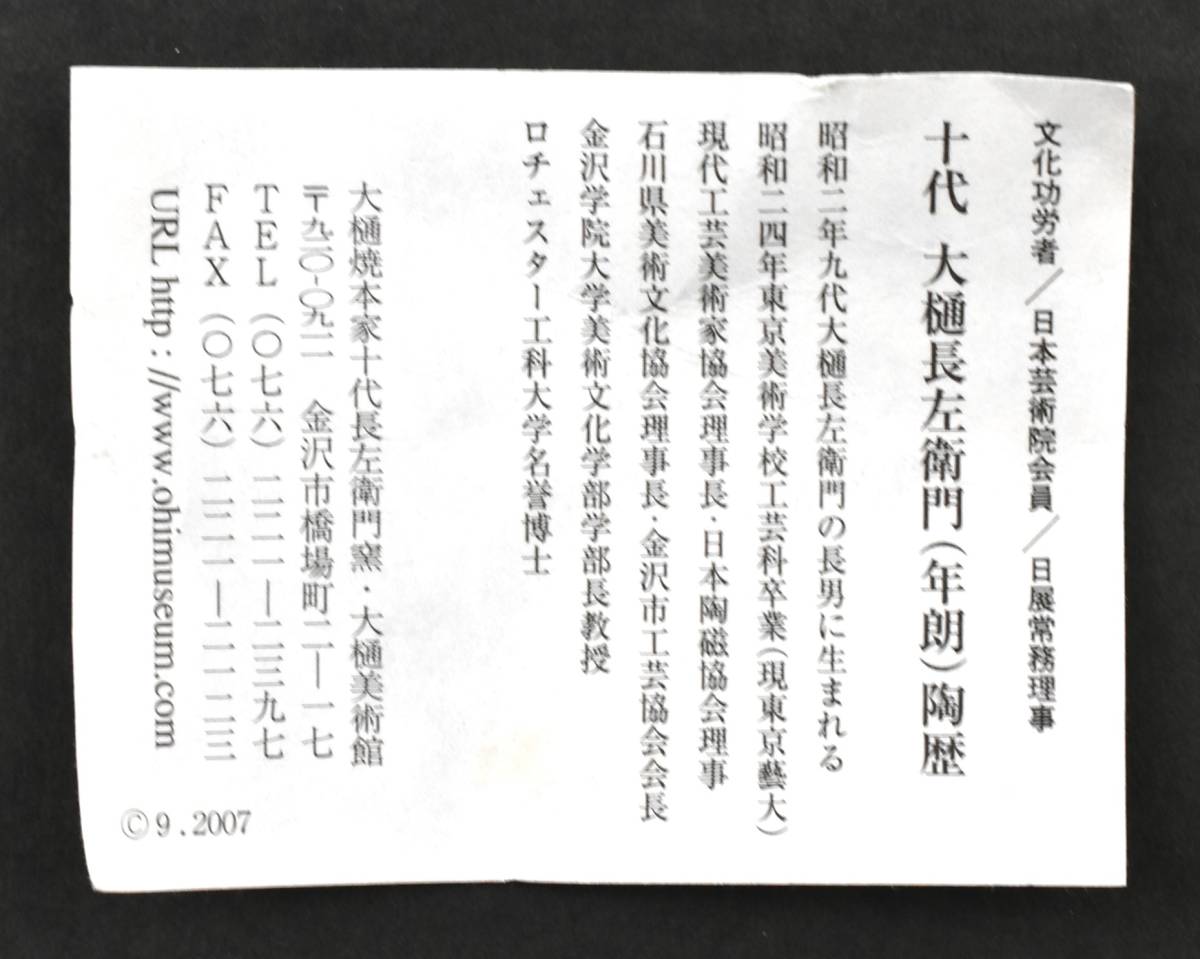 文化功労者／日本芸術院会員／日展常務理事
十代 大樋長左衛門（年朗）陶歴
昭和二年九代大樋長左衛門の長男に生まれる
昭和二四年東京美術学校工芸科卒業（現東京藝大）
現代工芸美術家協会理事長・日本陶磁協会理事
石川県美術文化協会理事長・金沢市工芸協会会長
金沢学院大学美術文化学部学部長教授
ロチェスター工科大学名誉博士
大樋焼本家十代長左衛門窯・大樋美術館
〒九二〇-〇九一一 金沢市橋場町二―一七
TEL（〇七六）二二一―二三九七
FAX（〇七六）
URL http://www.ohimuseum.com
©9.2007